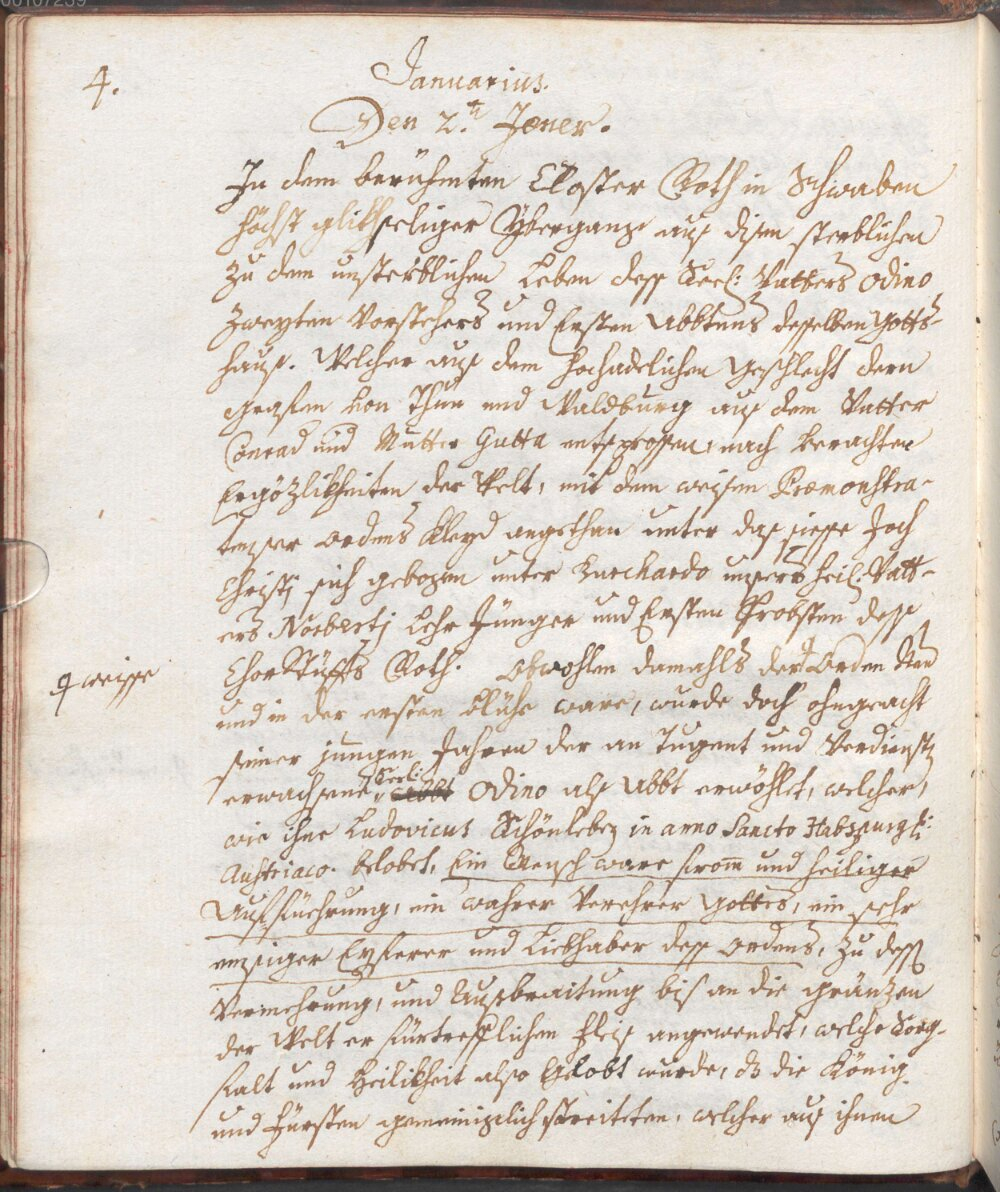 00107239
4.
Januarius.
Den 2.t Jæner.
In dem berühmten Closter Roth in Schwaben
höchst glikhseliger Yberganz aus disem sterblichen
zu dem unsterblichen Leben dess Seel: Vatters Odino
zweyten Vorstehers und Ersten Abbtens desselben Gotts-
haus. Welcher aus dem hochadelichen Geschlecht dern
Grafen von Thun und Waldburg aus dem Vatter
Conrad und Mutter Gutta entsprossen, nach verachten
Ergözlikheiten der Welt, mit dem weisen Præmonstra-
tenser Ordens Kleyd angethan unter das siesse Joch
Christi sich gebogen unter Burchardo unsers heil: Vatt-
ers Norbertj Lehr Jünger und Ersten Probsten dess
Chor Stüffts Roth. Obwohlen damahls der Orden
weisse
und in der ersten blühe ware, wurde doch ohngeacht
seiner jungen Jahren der an Tugent und Verdienst
erwachsene Seel: Abbt Odino als Abbt erwöhlet, welcher,
wie ihne Ludovicus Schönleben in anno Sancto Habspurgi:
Austriaco. belobet, Ein Mensch ware from und heiliger
Aufführung, ein wahrer Verehrer Gottes, ein sehr
einziger Eyferer und Liebhaber dess Ordens, zu dess
Vermehrung, und Ausbraitung bis an die gränzen
der Welt er fürtrefflichen fleis angewendet, welche Sorg-
falt und Heilikheit also gelobt wurde, dz die König
und Fürsten gemeiniglich streiteten, welcher aus ihnen